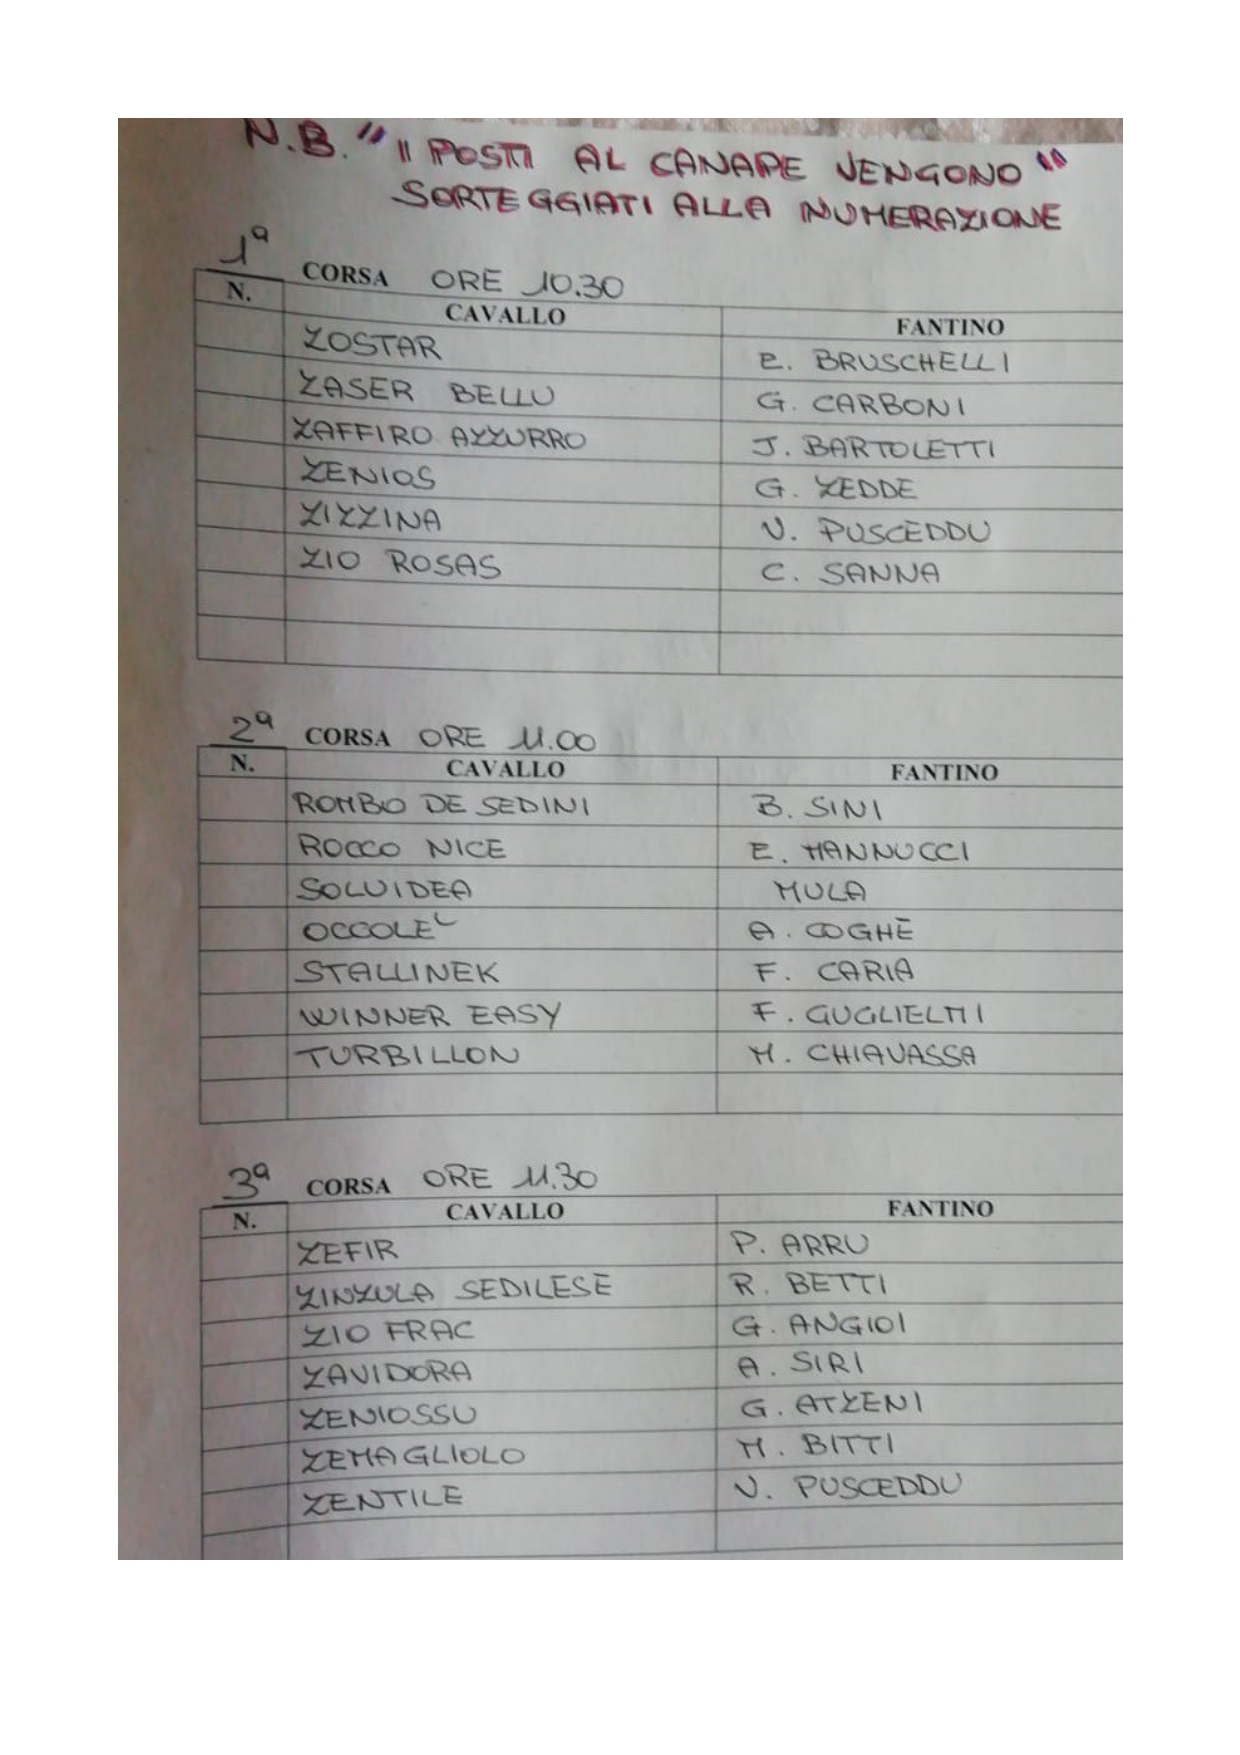 N.B. "I POSTI AL CANAPE VENGONO"
SORTEGGIATI ALLA NUMERAZIONE
1ª CORSA ORE 10.30
N. CAVALLO FANTINO
ZOSTAR E. BRUSCHELLI
ZASER BELLU G. CARBONI
ZAFFIRO AZZURRO J. BARTOLETTI
ZENIOS G. ZEDDE
ZIZZINA V. PUSCEDDU
ZIO ROSAS C. SANNA
2ª CORSA ORE 11.00
N. CAVALLO FANTINO
ROMBO DE SEDINI B. SINI
ROCCO NICE E. MANNUCCI
SOLUIDEA MULA
OCCOLE A. COGHE
STALLINEK F. CARIA
WINNER EASY F. GUGLIELMI
TURBILLON M. CHIAVASSA
3ª CORSA ORE 11.30
N. CAVALLO FANTINO
ZEFIR P. ARRU
ZINZULA SEDILESE R. BETTI
ZIO FRAC G. ANGIOI
ZAVIDORA A. SIRI
ZENIOSSU G. ATZENI
ZEMAGLIOLO M. BITTI
ZENTILE V. PUSCEDDU